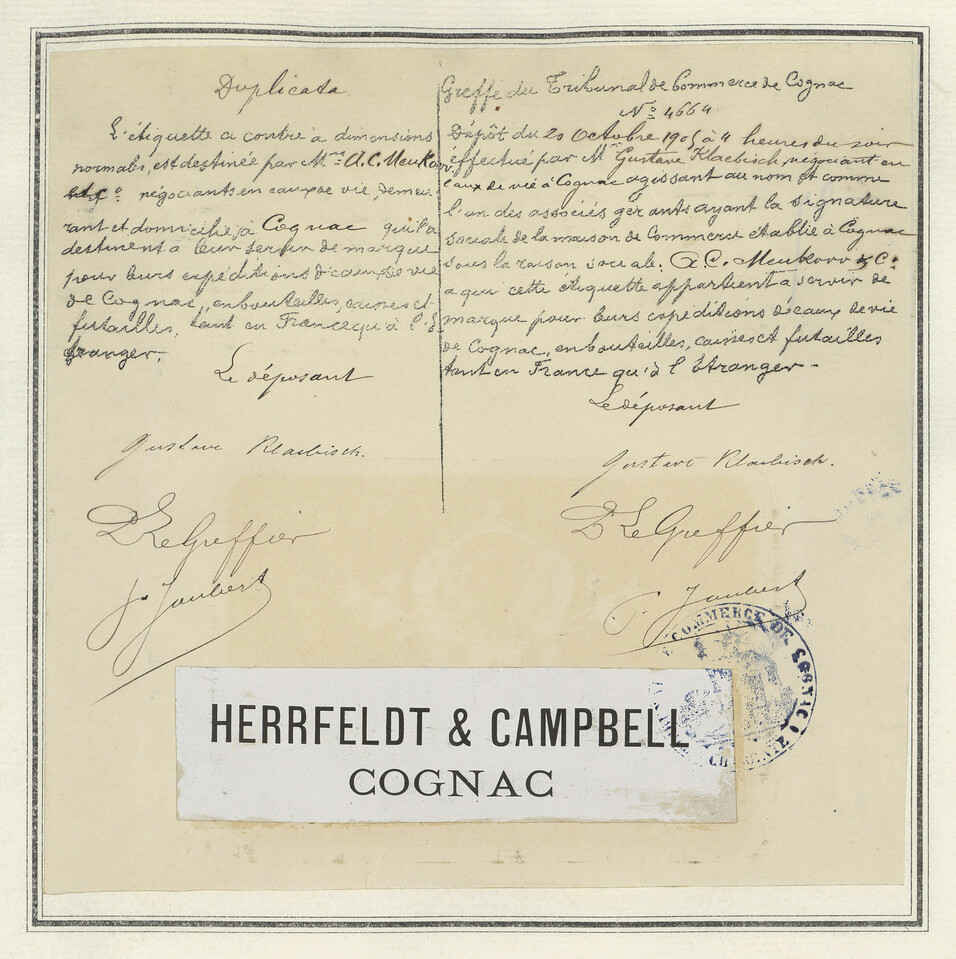 Duplicata
L'étiquette ci contre à dimensions
normales, est destinée par Mrs A.C. Meukow
et Co négociants en eaux de vie, demeu
rant et domiciliés à Cognac qui la
destinent à leur servir de marque
pour leurs expéditions d'eaux de vie
de Cognac, en bouteilles, caisses et
futailles, tant en France qu'à l'É
tranger.
Le déposant
Gustave Klaebisch.
Le Greffier
J. Joubert
Greffe du Tribunal de Commerce de Cognac
No 4664
Dépôt du 20 Octobre 1905 à 4 heures du soir
effectué par Mr Gustave Klaebisch, négociant en
eaux de vie à Cognac agissant au nom et comme
l'un des associés gérants ayant la signature
sociale de la maison de Commerce établie à Cognac
sous la raison sociale: A.C. Meukow & Co
à qui cette étiquette appartient à servir de
marque pour leurs expéditions d'eaux de vie
de Cognac, en bouteilles, caisses et futailles
tant en France qu'à l'Étranger.
Le déposant
Gustave Klaebisch.
Le Greffier
J. Joubert
COMMERCE DE COGNAC
CHARENTE
HERRFELDT & CAMPBELL
COGNAC